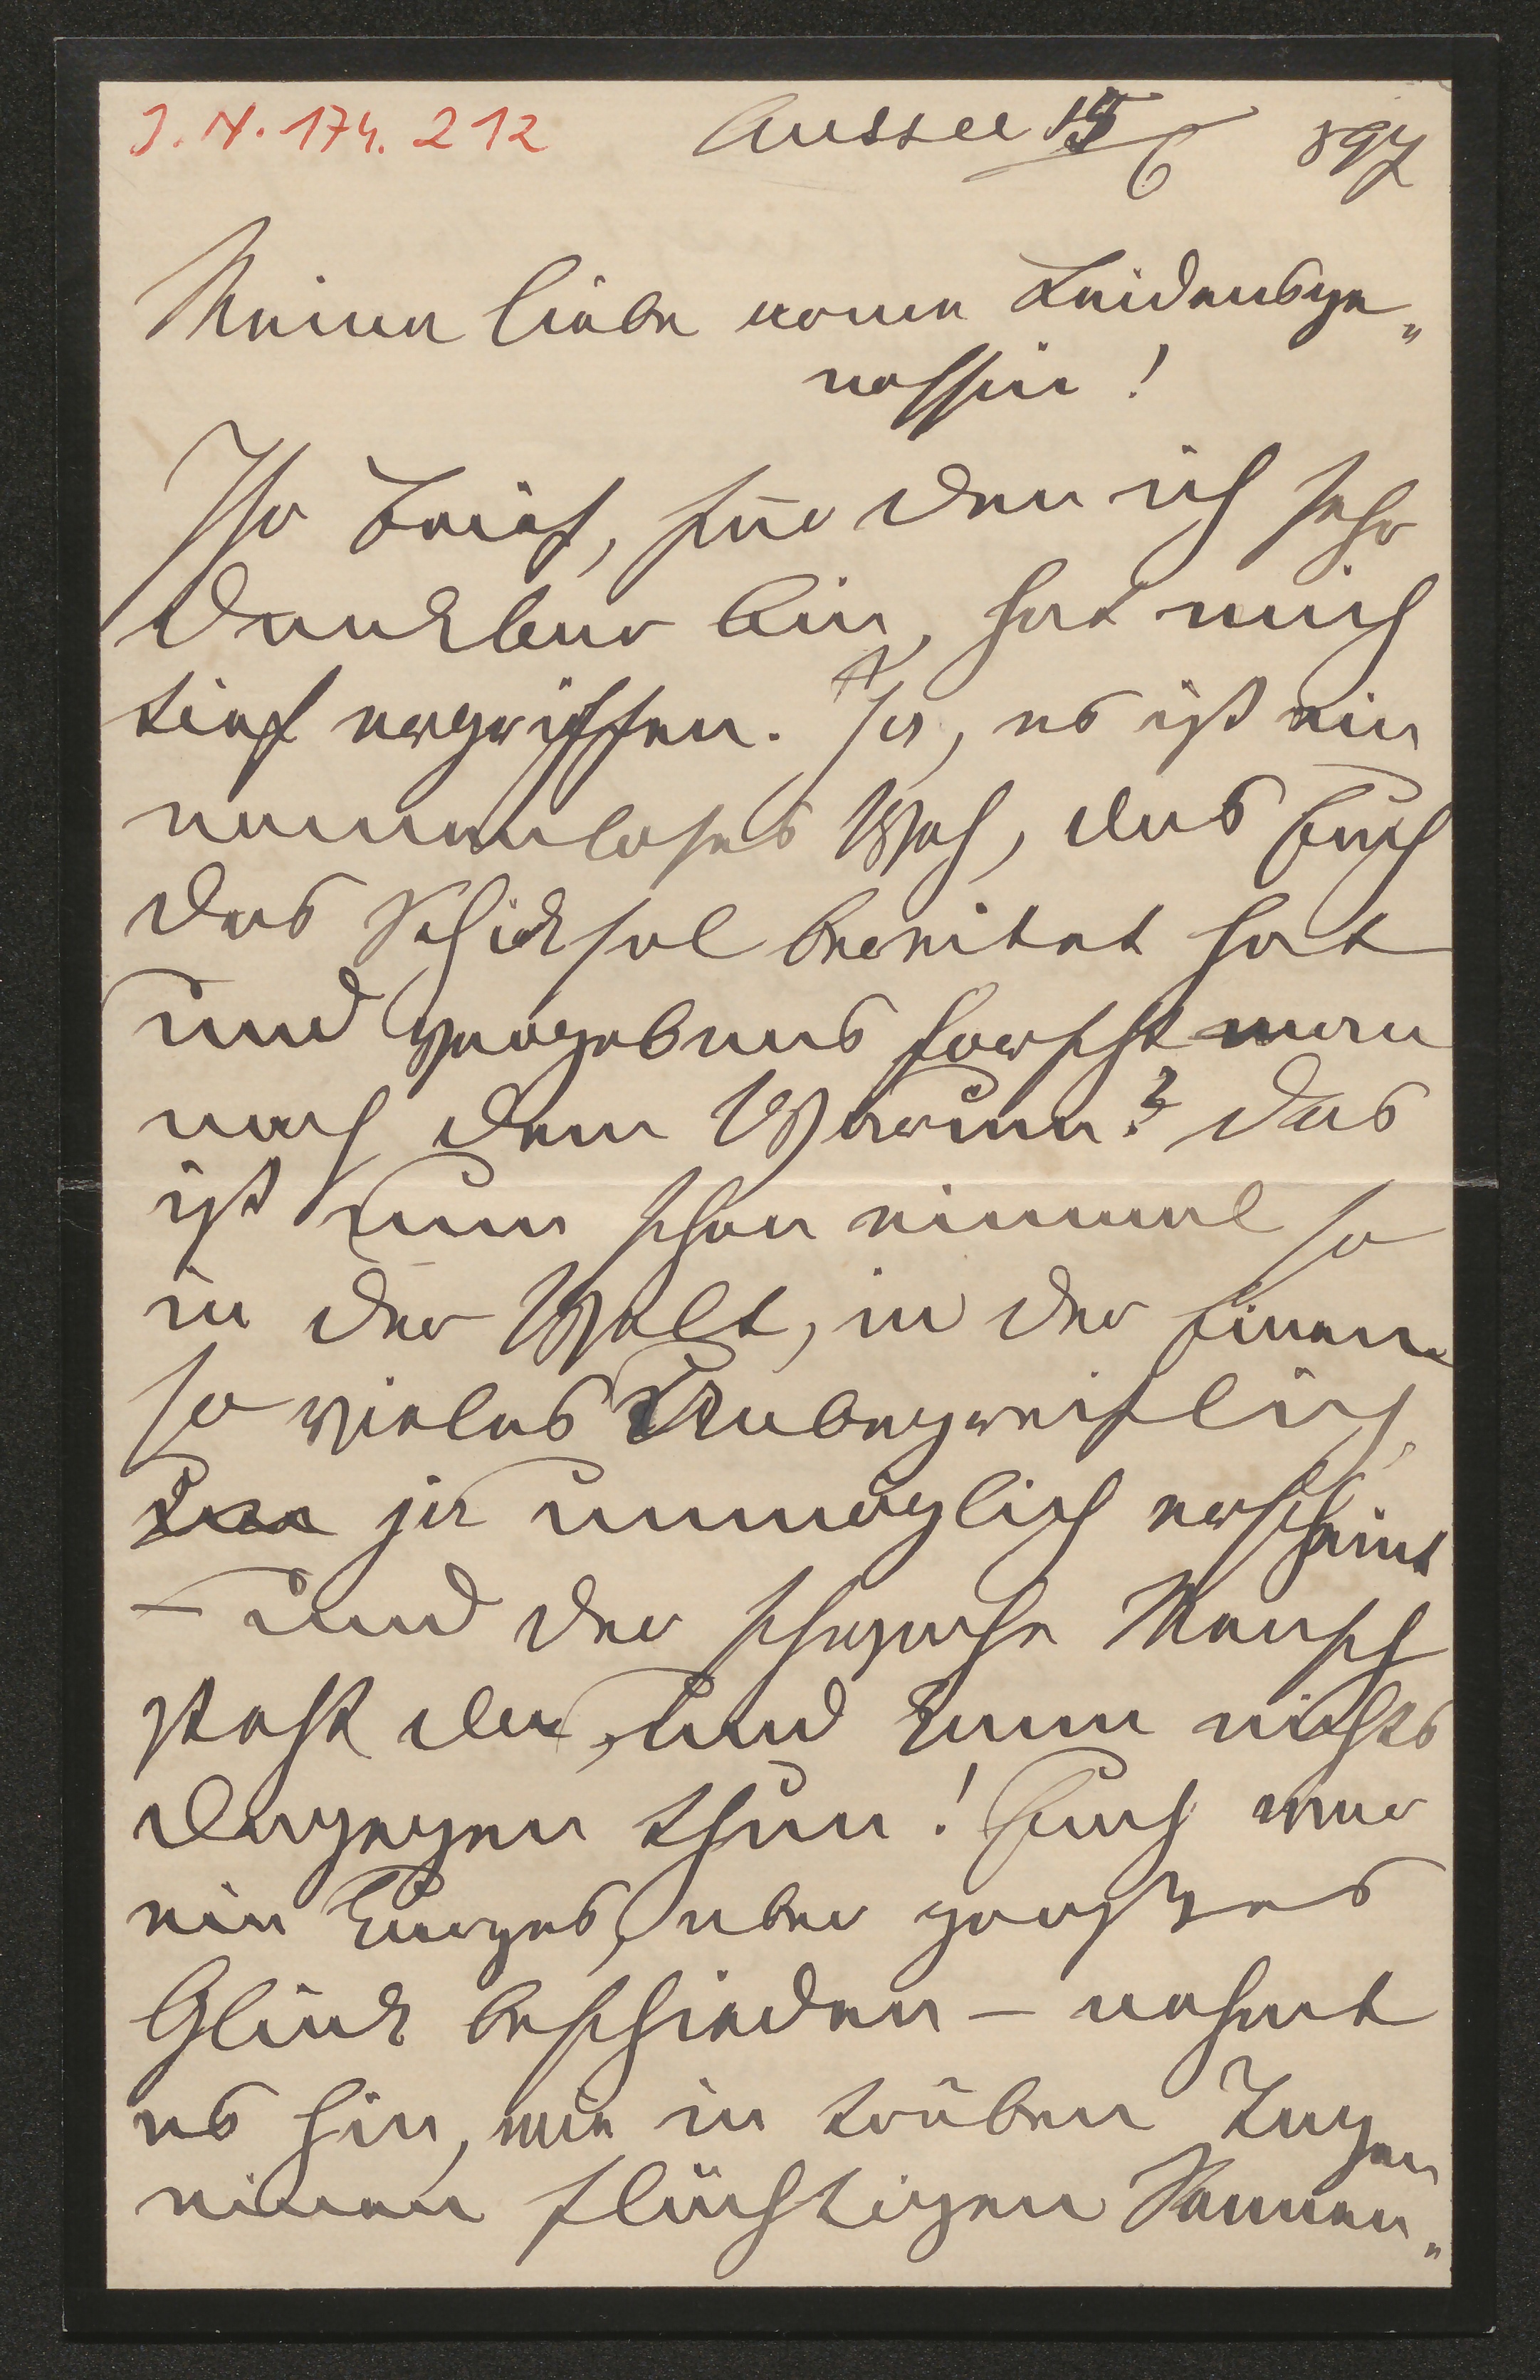 J. N. 174. 212
Aussee 15/6 897
Meine liebe arme Leidensge„
nossin!
Ihr Brief, für den ich sehr
dankbar bin, hat mich
tief ergriffen. Ja, es ist ein
namenloses Weh, das Euch
das Schicksal bereitet hat
und vergebens forscht man
nach dem Warum? Das
ist nun schon einmal so
in der Welt, in der Einem
so vieles Unbegreiflich,
ja unmöglich erscheint
– und der schwache Mensch
steht da, und kann nichts
dagegen thun! Euch war
ein kurzes, aber großes
Glück beschieden – nehmt
es hin, wie in trüben Tagen
einen flüchtigen Sonnen„